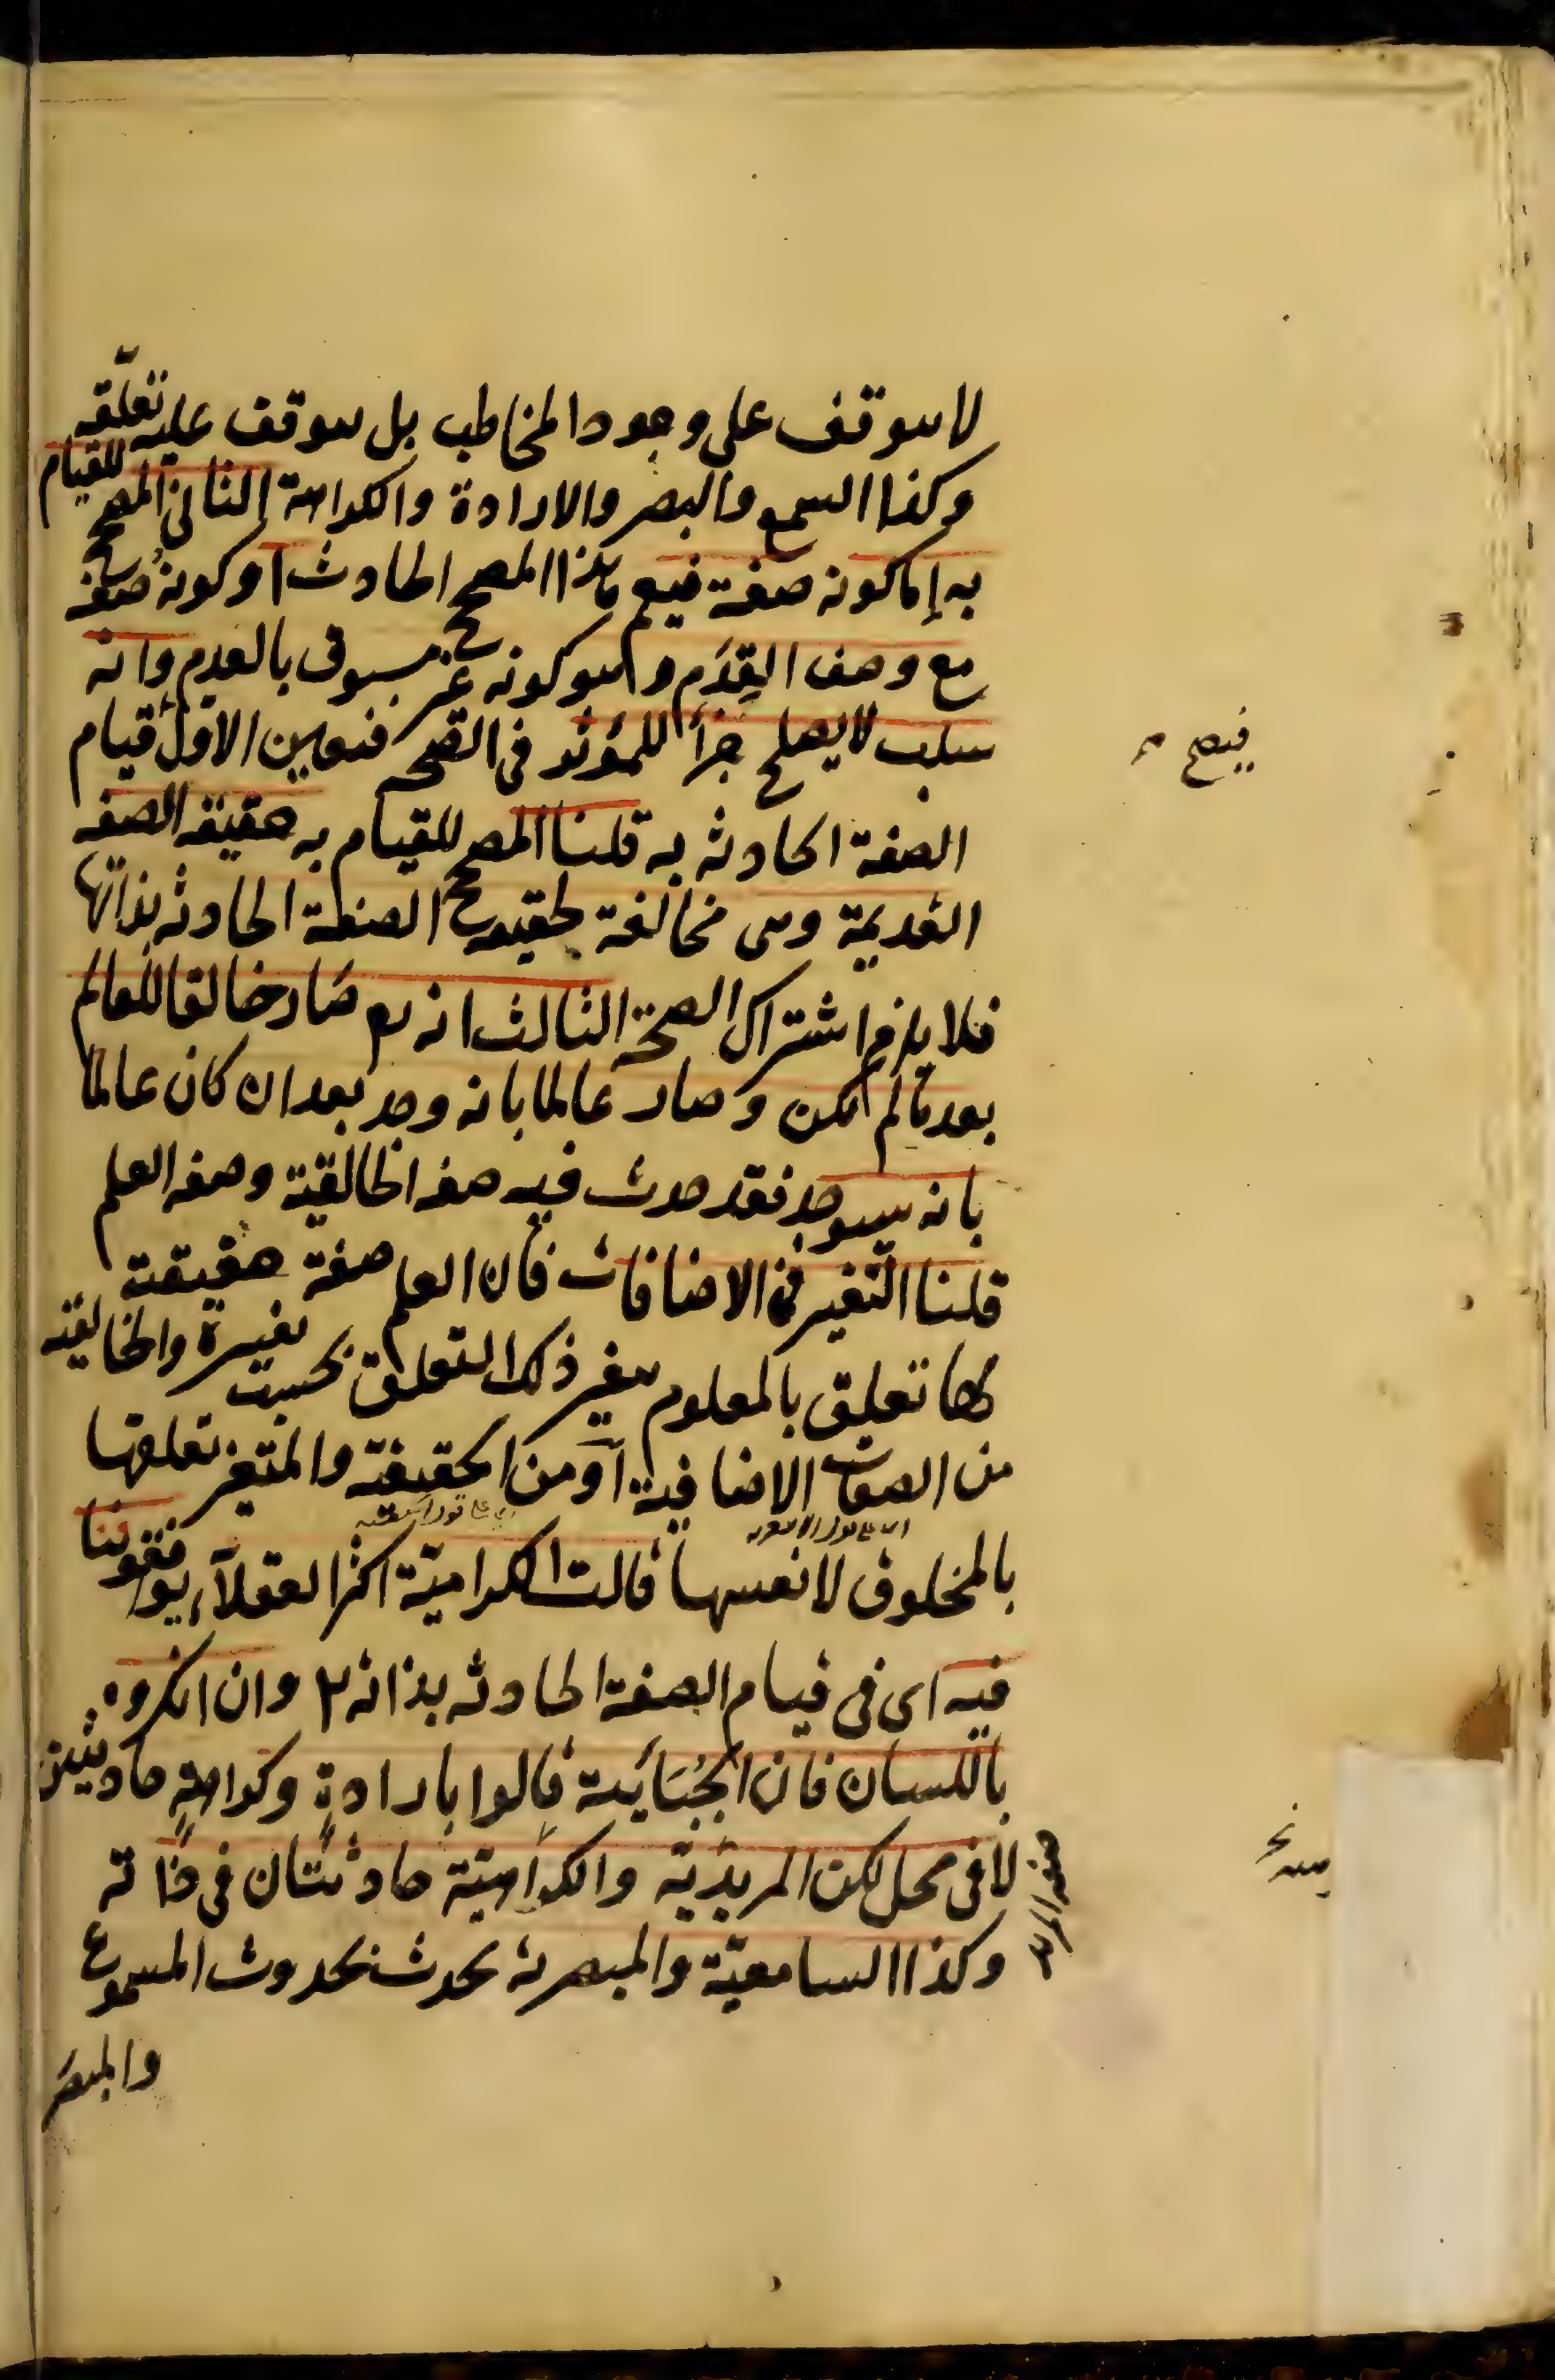 لا يتوقف على وجود المخاطب بل يتوقف عليه تعلّقه
وكذا السمع والبصر والارادة والكراهة الثاني المصحح للقيام
به إما كونه صفة فيعم هذا المصحح الحادث أو كونه صفة
مع وصف القِدَم وهو كونه غير مسبوق بالعدم وانه
سلب لا يصلح جزأ للمؤثر في الصحة فتعين الاول قيام
الصفة الحادثه به قلنا المصحح للقيام به حقيقة الصفة
القديمة وهى مخالفة لحقيقة الصفة الحادثه بذاتها
فلا يلزم اشتراك الصحة الثالث انه تع صار خالقا للعالم
بعد ما لم يكن وصار عالما بانه وجد بعد ان كان عالما
بانه سيوجد فقد حدث فيه صفة الخالقية وصفة العلم
قلنا التغير في الاضافات فان العلم صفة حقيقته
لها تعلق بالمعلوم يتغير ذلك التعلق بحسب تغيره والخالقيه
من الصفات الاضافية أو من الحقيقة والمتغير تعلقها
بالمخلوق لا نفسها قالت الكرامية اكثر العقلاء يوافقوننا
فيه اى في قيام الصفة الحادثه بذاته وان انكروه
باللسان فان الجُبَائية قالوا بارادةٍ وكراهةٍ حادثتين
لا في محل لكن المريديّة والكراهيّة حادثتان في ذاته
وكذا السامعيّة والمبصرية تحدث بحدوث المسموع
والمبصَر
فيصح